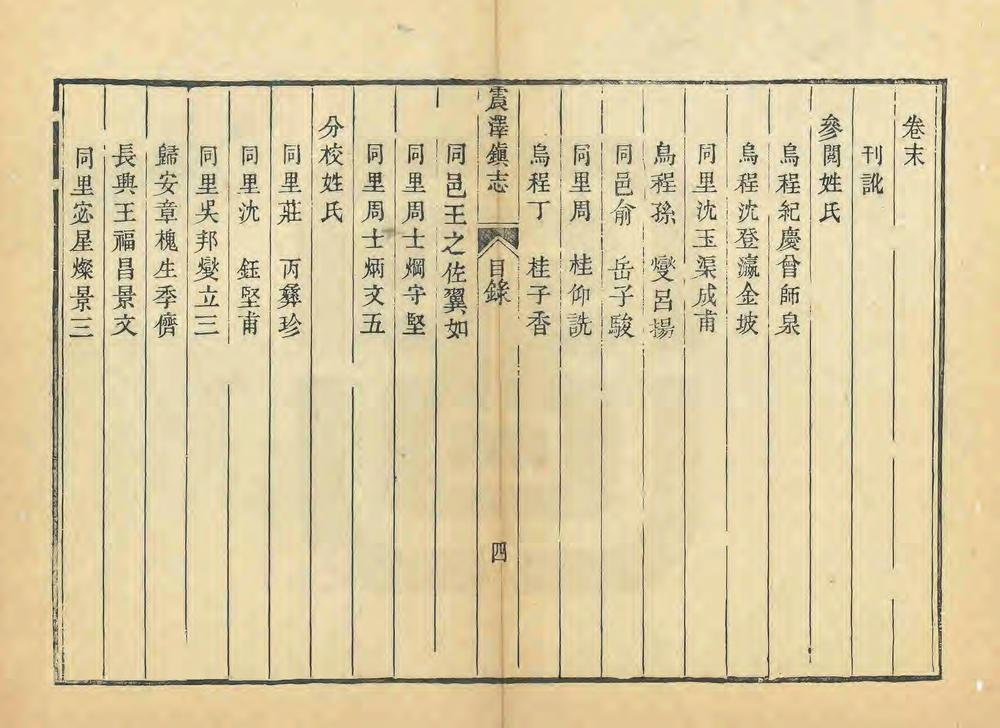 卷末
刊訛
參閱姓氏
烏程紀慶曾師泉
烏程沈登瀛金坡
同里沈玉渠成甫
烏程孫　燮呂揚
同邑俞　岳子駿
同里周　桂仰詵
烏程丁　桂子香
震澤鎮志
目錄
四
同邑王之佐翼如
同里周士爛守堅
同里周士炳文五
分校姓氏
同里莊　丙彝珍
同里沈　鈺堅甫
同里吳邦燮立三
歸安章槐生季儕
長興王福昌景文
同里宓星燦景三